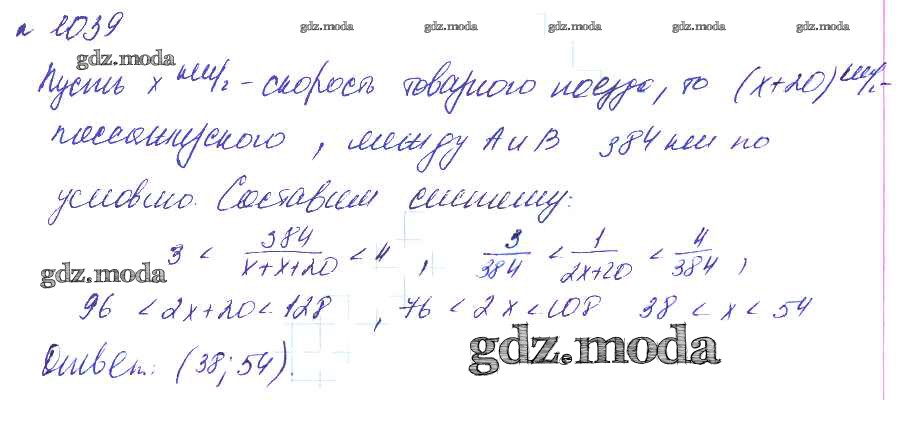 № 1039
gdz.moda gdz.moda gdz.moda gdz.moda gdz.moda
gdz.moda
Пусть x км/г - скорость товарного поезда, то (x+20) км/г -
пассажирского, между А и В 384 км по
условию. Составим систему:
3 < 384/(x+x+20) < 4, 3/384 < 1/(2x+20) < 4/384,
gdz.moda
96 < 2x+20 < 128, 76 < 2x < 108 38 < x < 54
gdz.moda
Ответ: (38; 54).